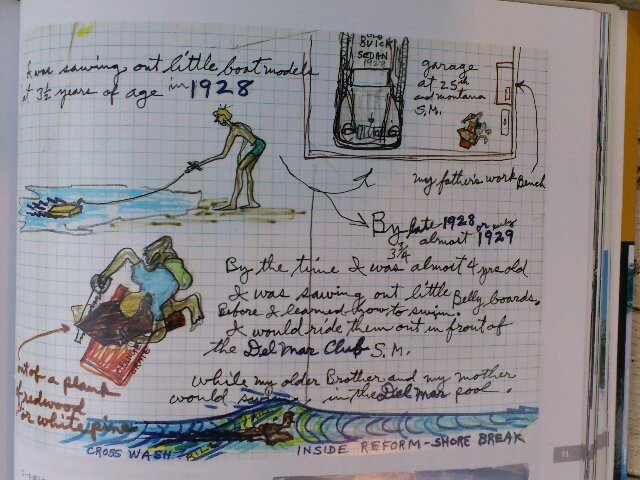 I was sawing out little boat models
at 3½ years of age in 1928
OLD
BUICK
SEDAN
1928
garage
at 25th
and montana
S.M.
my father's work Bench
By late 1928 or early
3 3/4 almost 1929
By the time I was almost 4 yrs old
I was sawing out little Belly boards.
Before I learned how to swim.
I would ride them out in front of
the Del Mar Club S.M.
while my older Brother and my mother
would swim in the Del Mar pool.
out of a plank
of redwood
or white pine
CRATE
CROSS WASH
INSIDE REFORM-SHORE BREAK